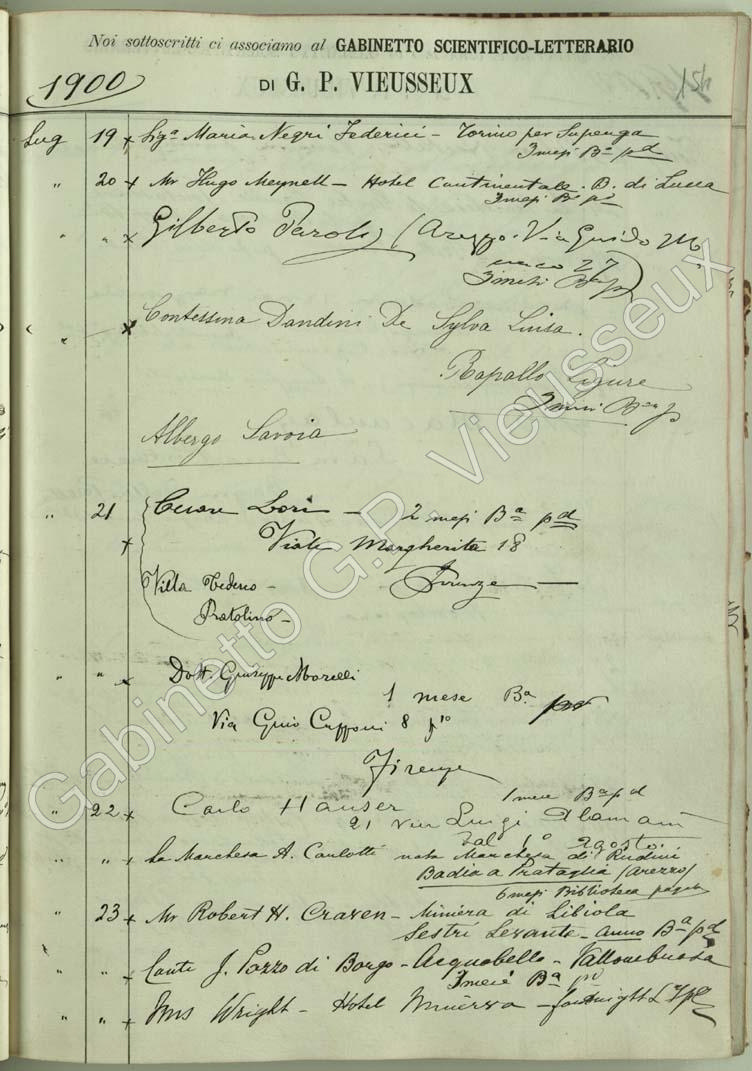 Noi sottoscritti ci associamo al GABINETTO SCIENTIFICO-LETTERARIO
1900
DI G. P. VIEUSSEUX
Lug 19 x Sigª Maria Negri Federici - Torino per Superga
3 mesi Bª pd
" 20 x Mr Hugo Meynell - Hotel Continentale. B. di Lucca
3 mesi Bª pd
" " x Gilberto Paroli (Arezzo. Via Guido M
27
3 mesi Bª p
" x Contessina Dandini De Sylva Luisa.
Rapallo Ligure
3 mesi Bª p
Albergo Savoia
" 21 Cesare Lori - 2 mesi Bª pd
x Viale Margherita 18
Villa - Firenze -
Pratolino -
" " x Dott. Giuseppe Morelli
1 mese Bª
Via Gino Capponi 8 pº
Firenze
" 22 x Carlo Hauser 1 mese Bª pd
21 via Luigi Alamanni
dal 1º agosto.
" " x La Marchesa A. Carlotti nata Marchesa di Rudini
Badia a Prataglia (Arezzo)
6 mesi Biblioteca
" 23 x Mr Robert H. Craven - Miniera di Libiola
Sestri Levante - anno Bª pd
" " x Conte J. Pozzo di Borgo - Acquabella - Vallombrosa
Bª pd
" " x Wright - Hotel Minerva - fortnight
Gabinetto G.P. Vieusseux